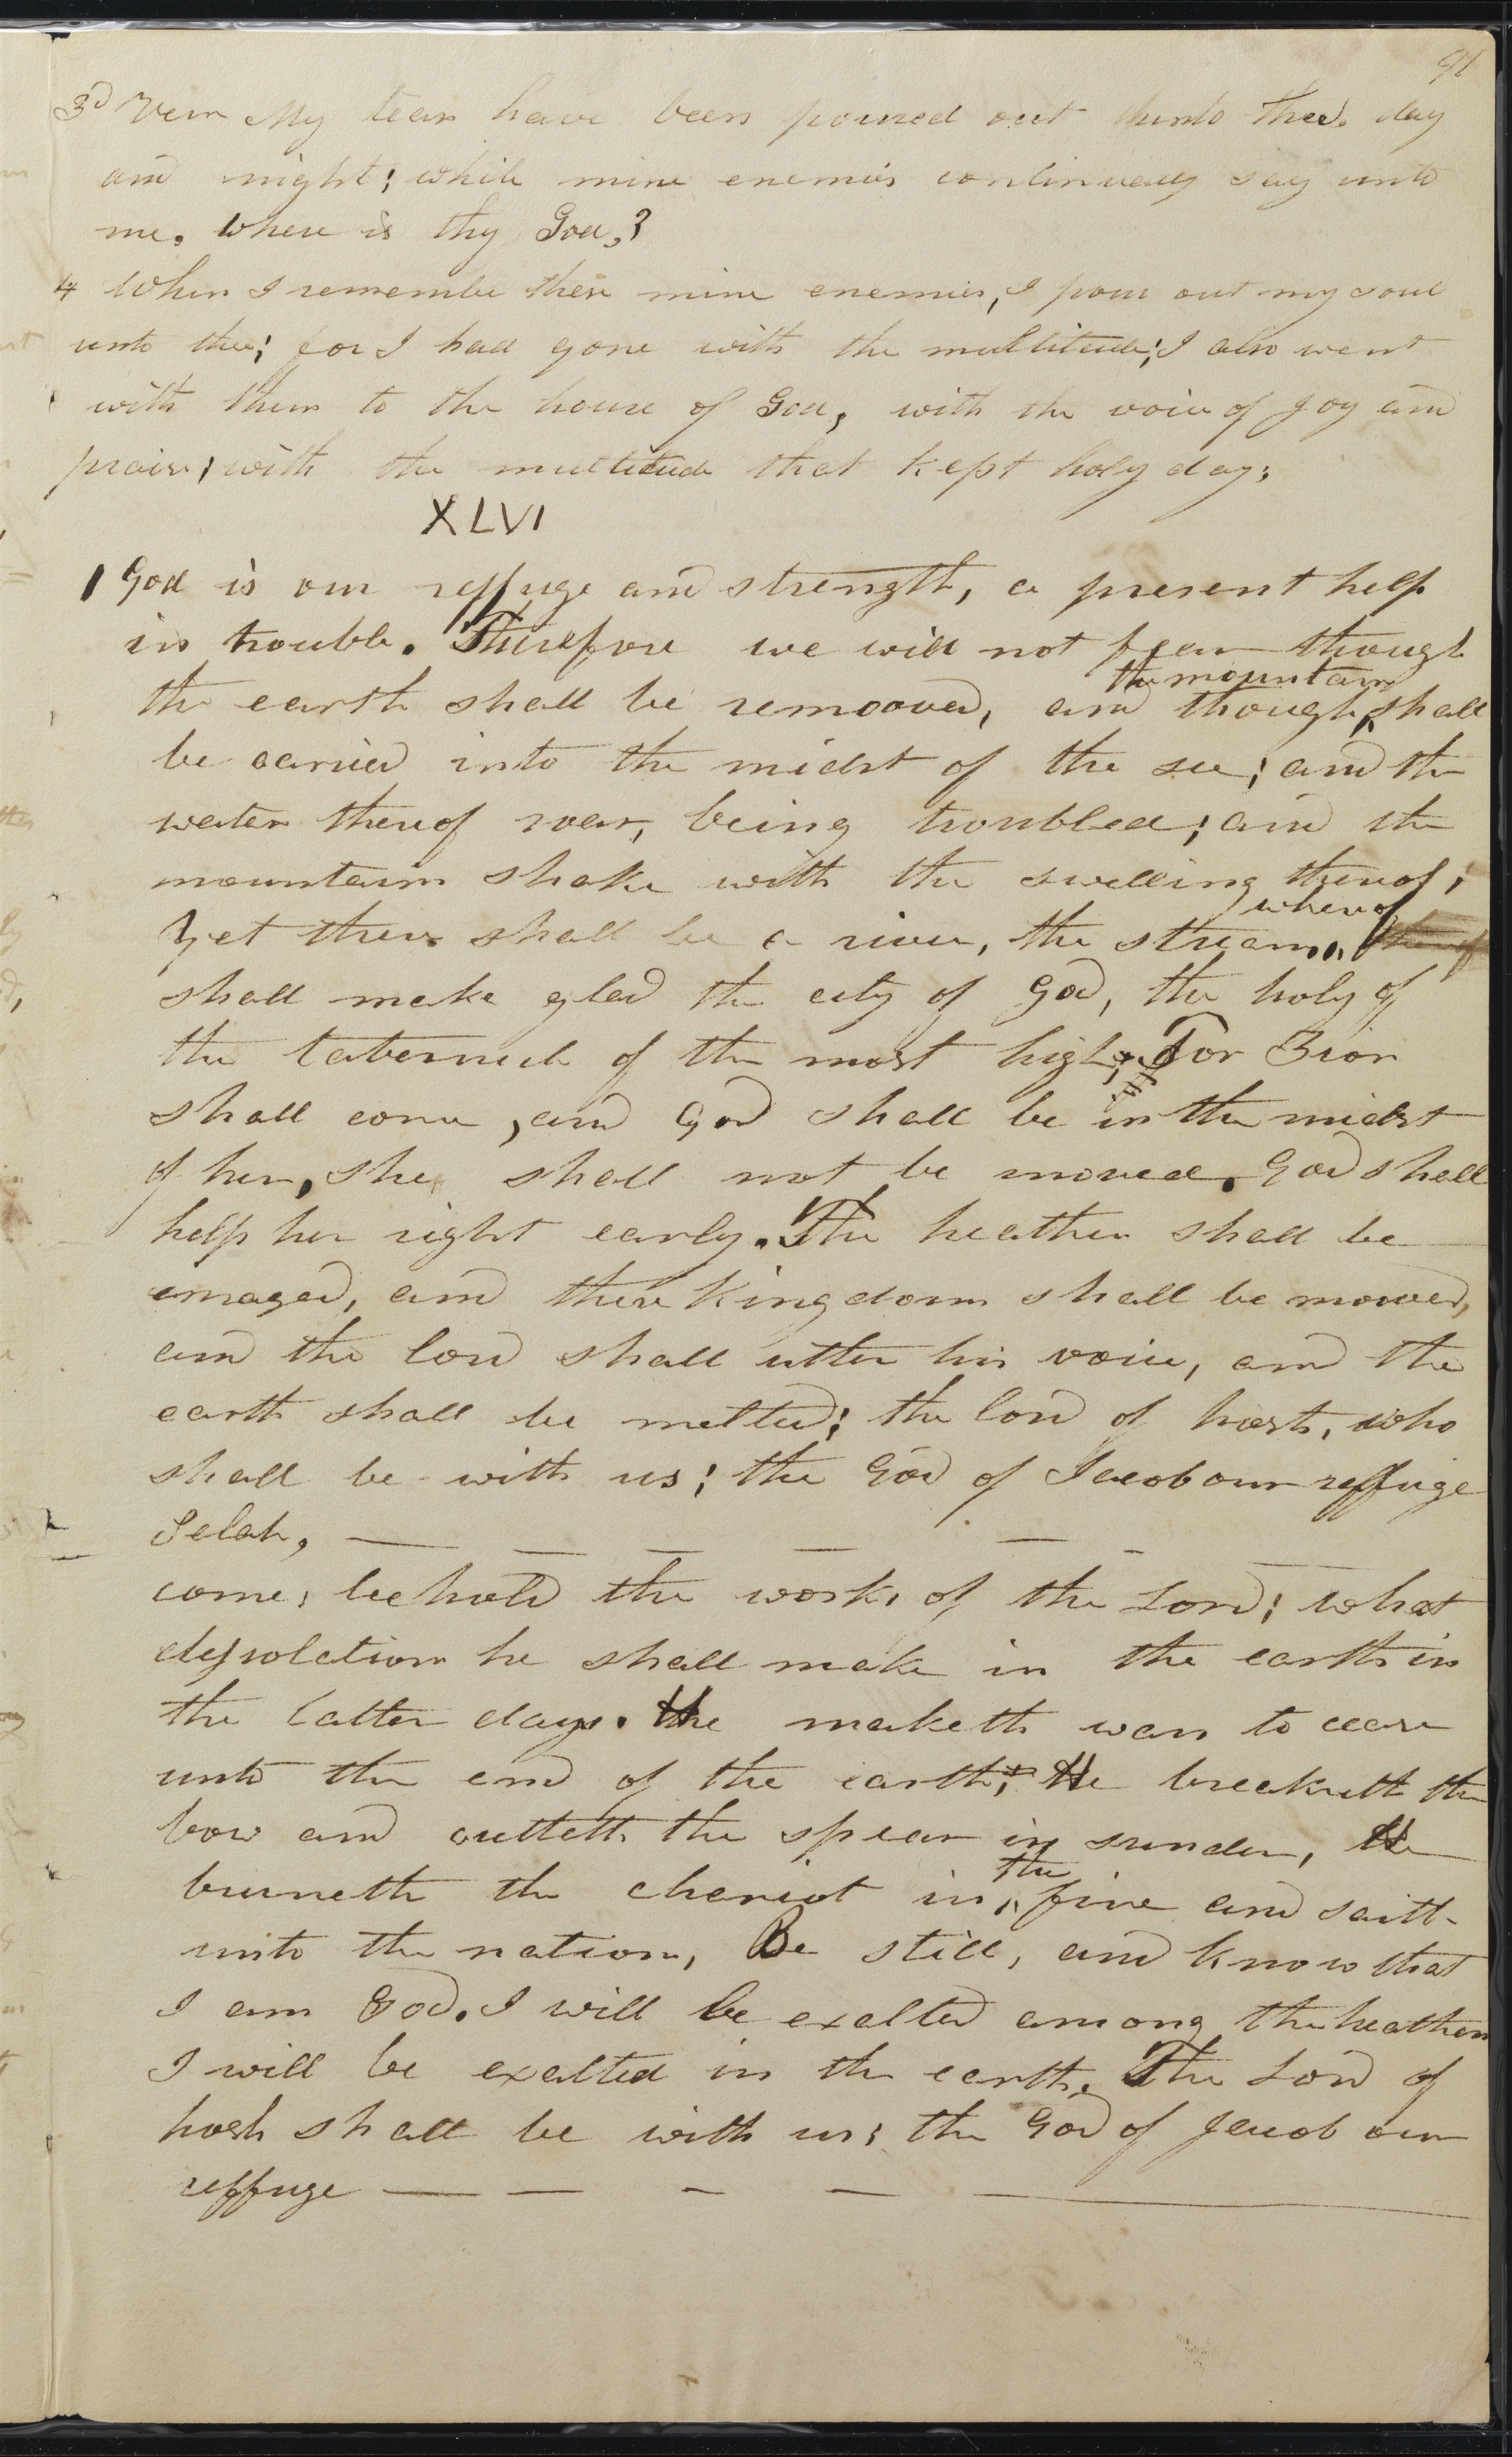 91
3d Vers My tears have been poured out unto thee day
and night; while mine enemies continually say unto
me. Where is thy God,?
4 When I remember these mine enemies, I pour out my soul
unto thee; for I had gone with the multitude; I also went
with them to the house of God, with the voice of Joy and
praise, with the multitude that kept holy day;
XLVI
1 God is our reffuge and strength, a present help
in trouble. Therefore we will not fear though
the earth shall be remooved, and though the mountains shall
be carried into the midst of the sea; and the
waters thereof roar, being troubled; and the
mountains shake with the swelling thereof;
Yet there shall be a river, the streams whereof thereof
shall make glad the city of God, the holy of
the tabernacle of the most high; For Zion
shall come, and God shall be in the midst
of her, she shall not be moved. God shall
help her right early. The heathen shall be
enraged, and there Kingdoms shall be mooved,
and the lord shall utter his voice, and the
earth shall be melted; the lord of hosts, who
shall be with us; the God of Jacob our reffuge
Selah,
come, behold the works of the Lord; what
dessolations he shall make in the earth in
the latter days. He maketh wars to cease
unto the end of the earth; He breaketh the
bow and cutteth the spear in sunder, He
burneth the chariot in the fire and saith
unto the nations, Be still, and know that
I am God. I will be exalted among the heathen
I will be exalted in the earth. The Lord of
hosts shall be with us; the God of Jacob our
reffuge